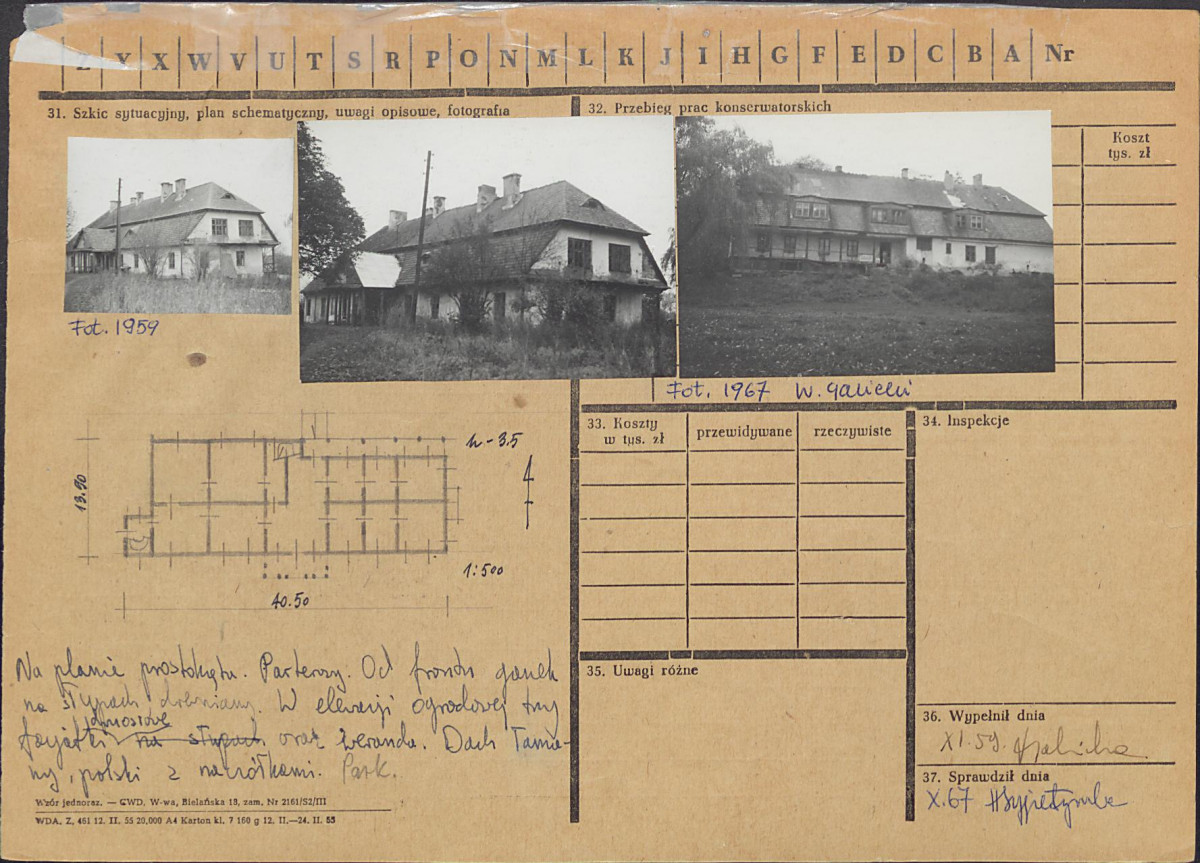 Z Y X W V U T S R P O N M L K J I H G F E D C B A Nr
31. Szkic sytuacyjny, plan schematyczny, uwagi opisowe, fotografia
32. Przebieg prac konserwatorskich
Koszt
tys. zł
Fot. 1959
Fot. 1967 W.
h-3.5
13.90
1:500
40.50
Na planie prostokąta. Parterowy. Od frontu ganek
na słupach drewniany. W elewacji ogrodowej trzy
facjatki na słupach oraz weranda. Dach łama-
ny, polski z naczółkami. Park.
Wzór jednoraz. — CWD, W-wa, Bielańska 18, zam. Nr 2161/S2/III
WDA. Z. 461 12. II. 55 20,000 A4 Karton kl. 7 160 g 12. II.—24. II. 55
33. Koszty
w tys. zł
przewidywane
rzeczywiste
34. Inspekcje
35. Uwagi różne
36. Wypełnił dnia
XI.59.
37. Sprawdził dnia
X.67